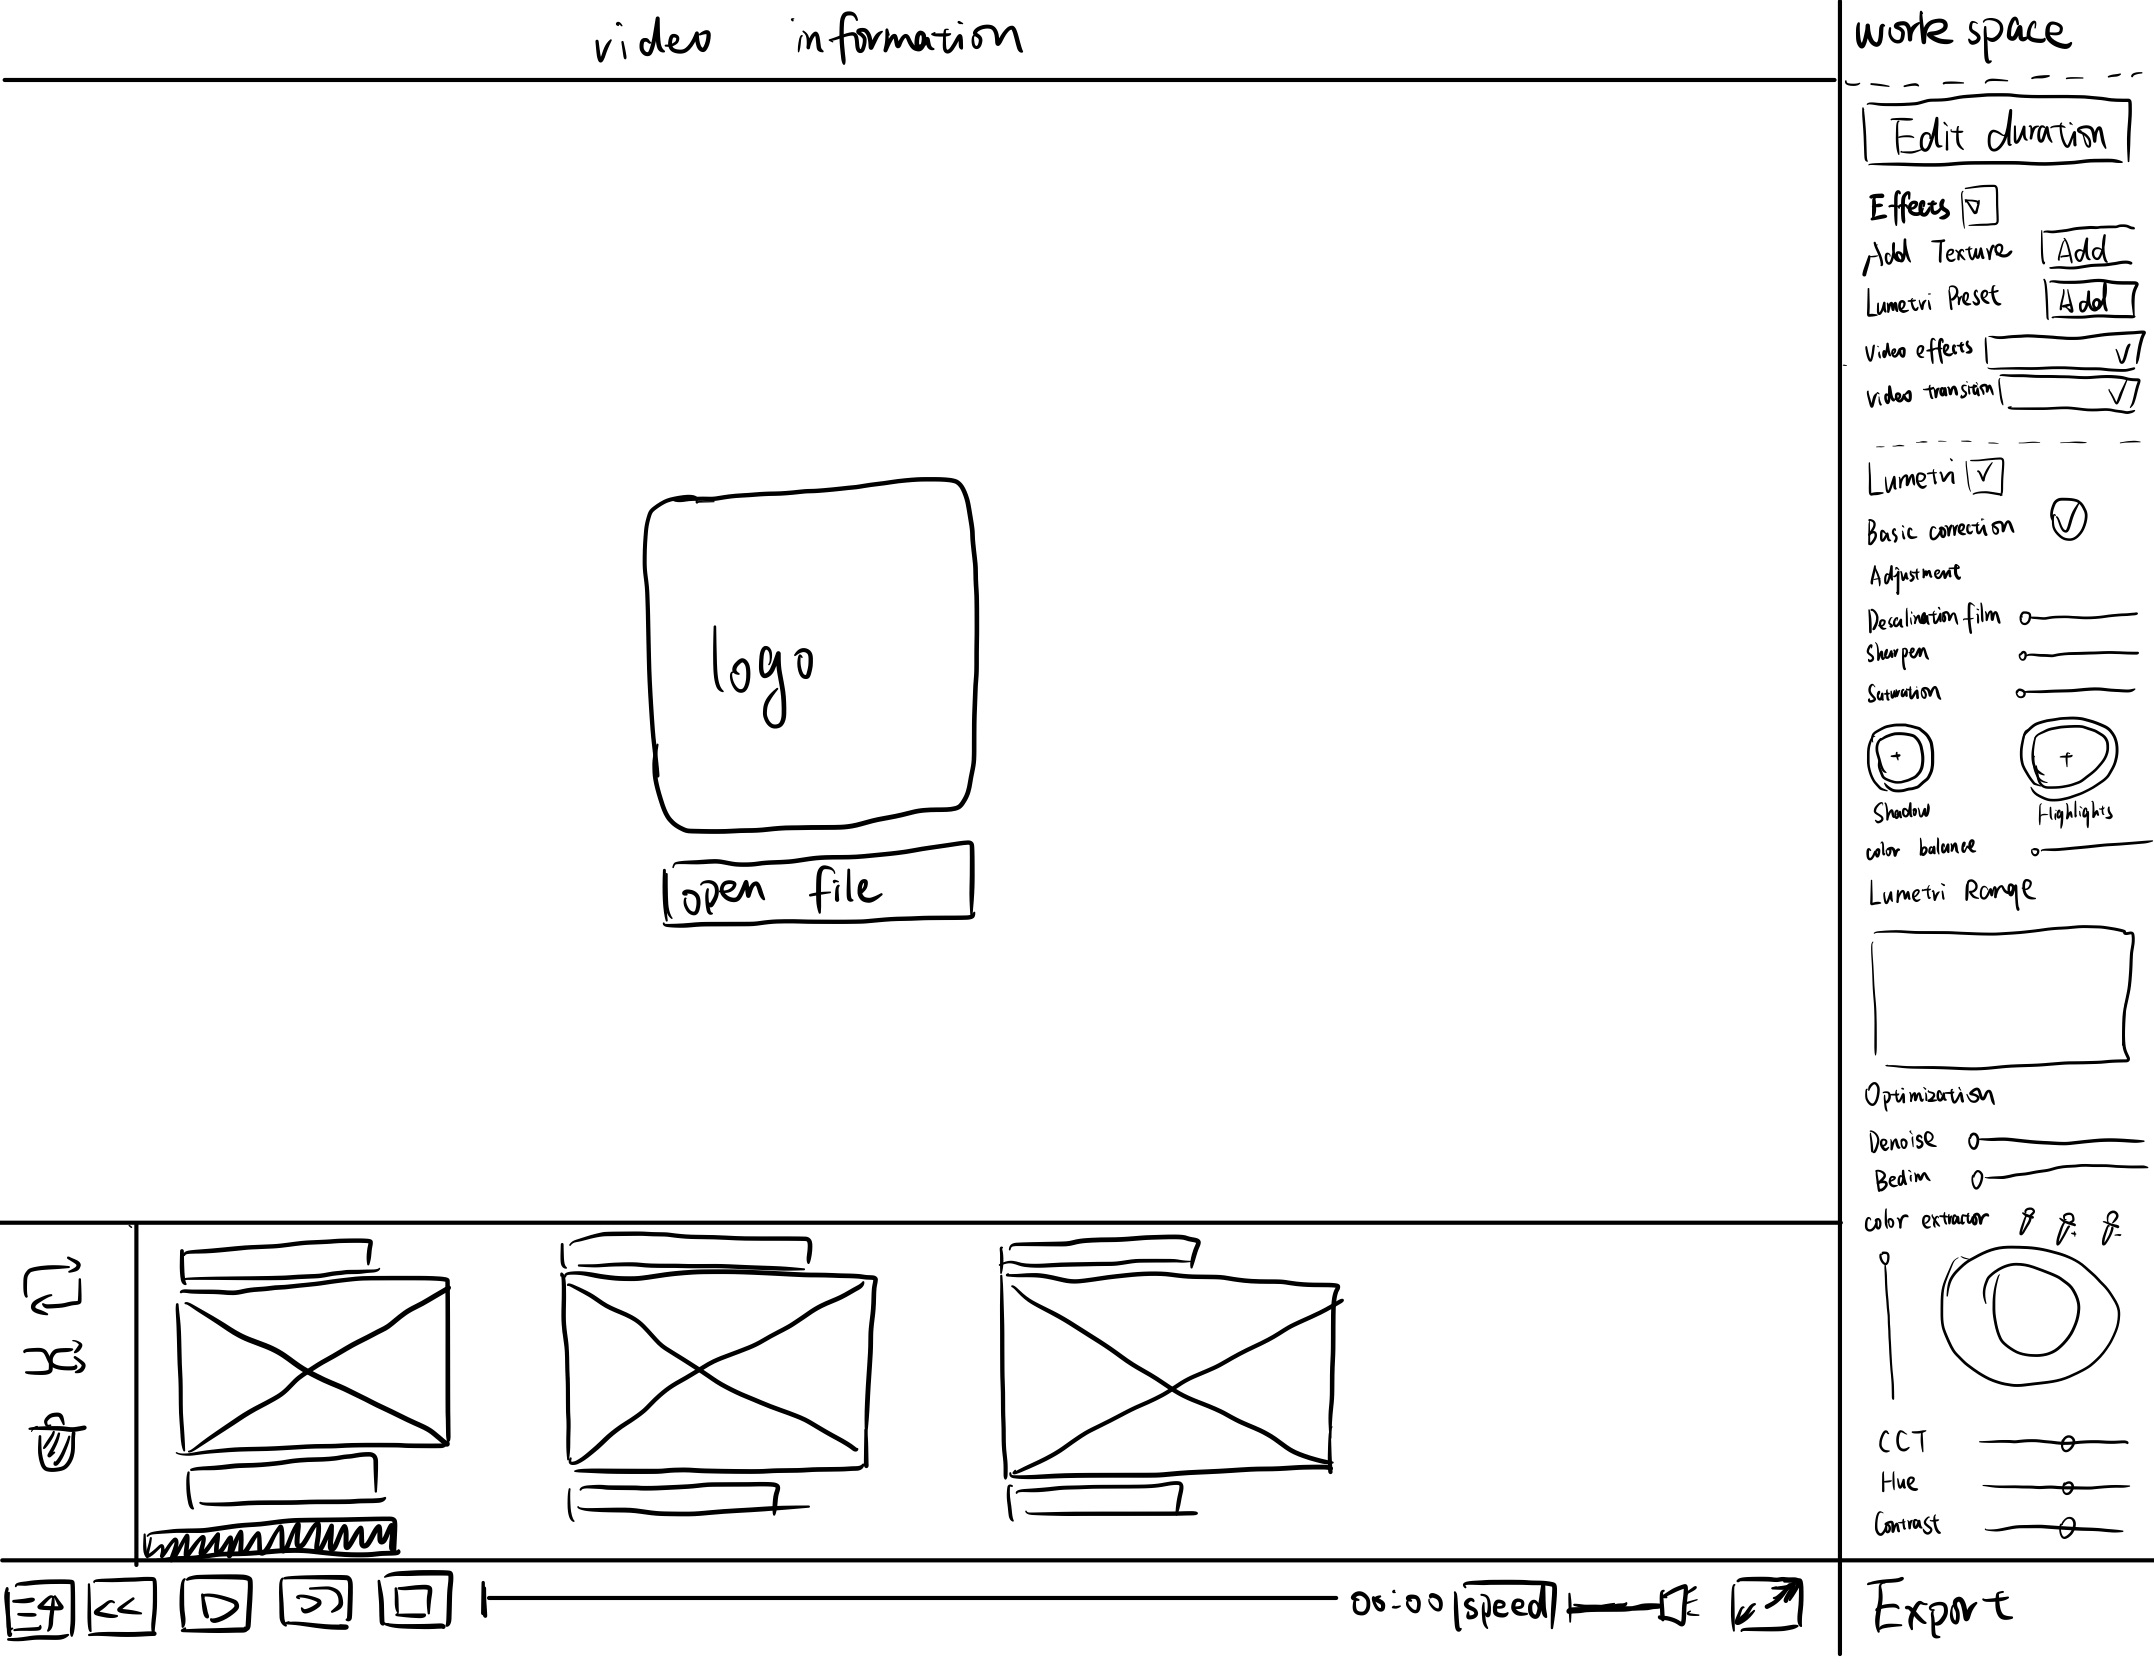 video information
work space
Edit duration
Effects
Add Texture Add
Lumetri Preset Add
video effects
video transition
Lumetri
Basic correction
Adjustment
Desalination film
Sharpen
Saturation
Shadow Highlights
color balance
Lumetri Range
Optimization
Denoise
Bedim
color extractor
CCT
Hue
Contrast
Export
logo
open file
00:00 speed